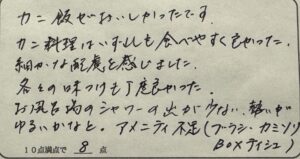 カニ飯がおいしかったです。
カニ料理はいずしも食べやすく良かった。
細かな配慮を感じました。
各々の味つけも丁度良かった。
お風呂場のシャワーの出が少ない、勢いが
ゆるいかなと。アメニティ不足(ブラシ・カミソリ
BOXティシュ)
10点満点で 8 点